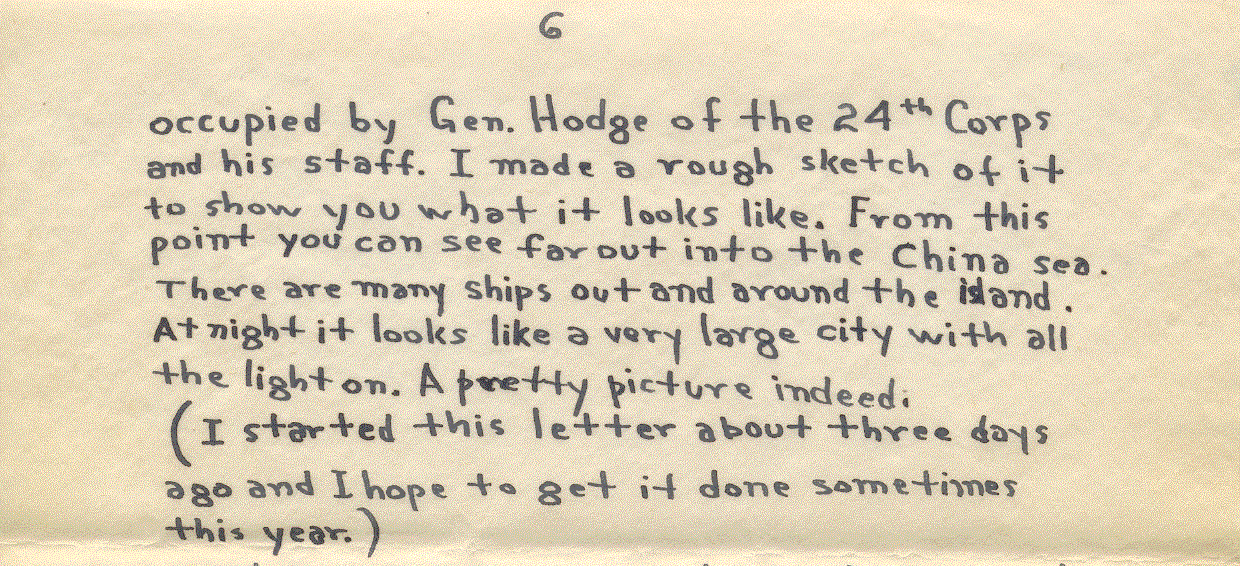 6
occupied by Gen. Hodge of the 24th Corps
and his staff. I made a rough sketch of it
to show you what it looks like. From this
point you can see far out into the China sea.
There are many ships out and around the island.
At night it looks like a very large city with all
the light on. A pretty picture indeed.
(I started this letter about three days
ago and I hope to get it done sometimes
this year.)